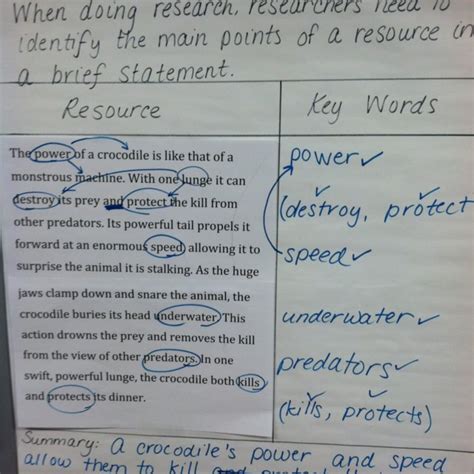 When doing research, researchers need to
identify the main points of a resource in
a brief statement.
Resource
Key Words
The power of a crocodile is like that of a
monstrous machine. With one lunge it can
destroy its prey and protect the kill from
other predators. Its powerful tail propels it
forward at an enormous speed, allowing it to
surprise the animal it is stalking. As the huge
jaws clamp down and snare the animal, the
crocodile buries its head underwater. This
action drowns the prey and removes the kill
from the view of other predators. In one
swift, powerful lunge, the crocodile both kills
and protects its dinner.
power ✓
(destroy, protect
speed ✓
underwater ✓
predators ✓
(kills, protects)
Summary: A crocodile's power and speed
allow them to kill and